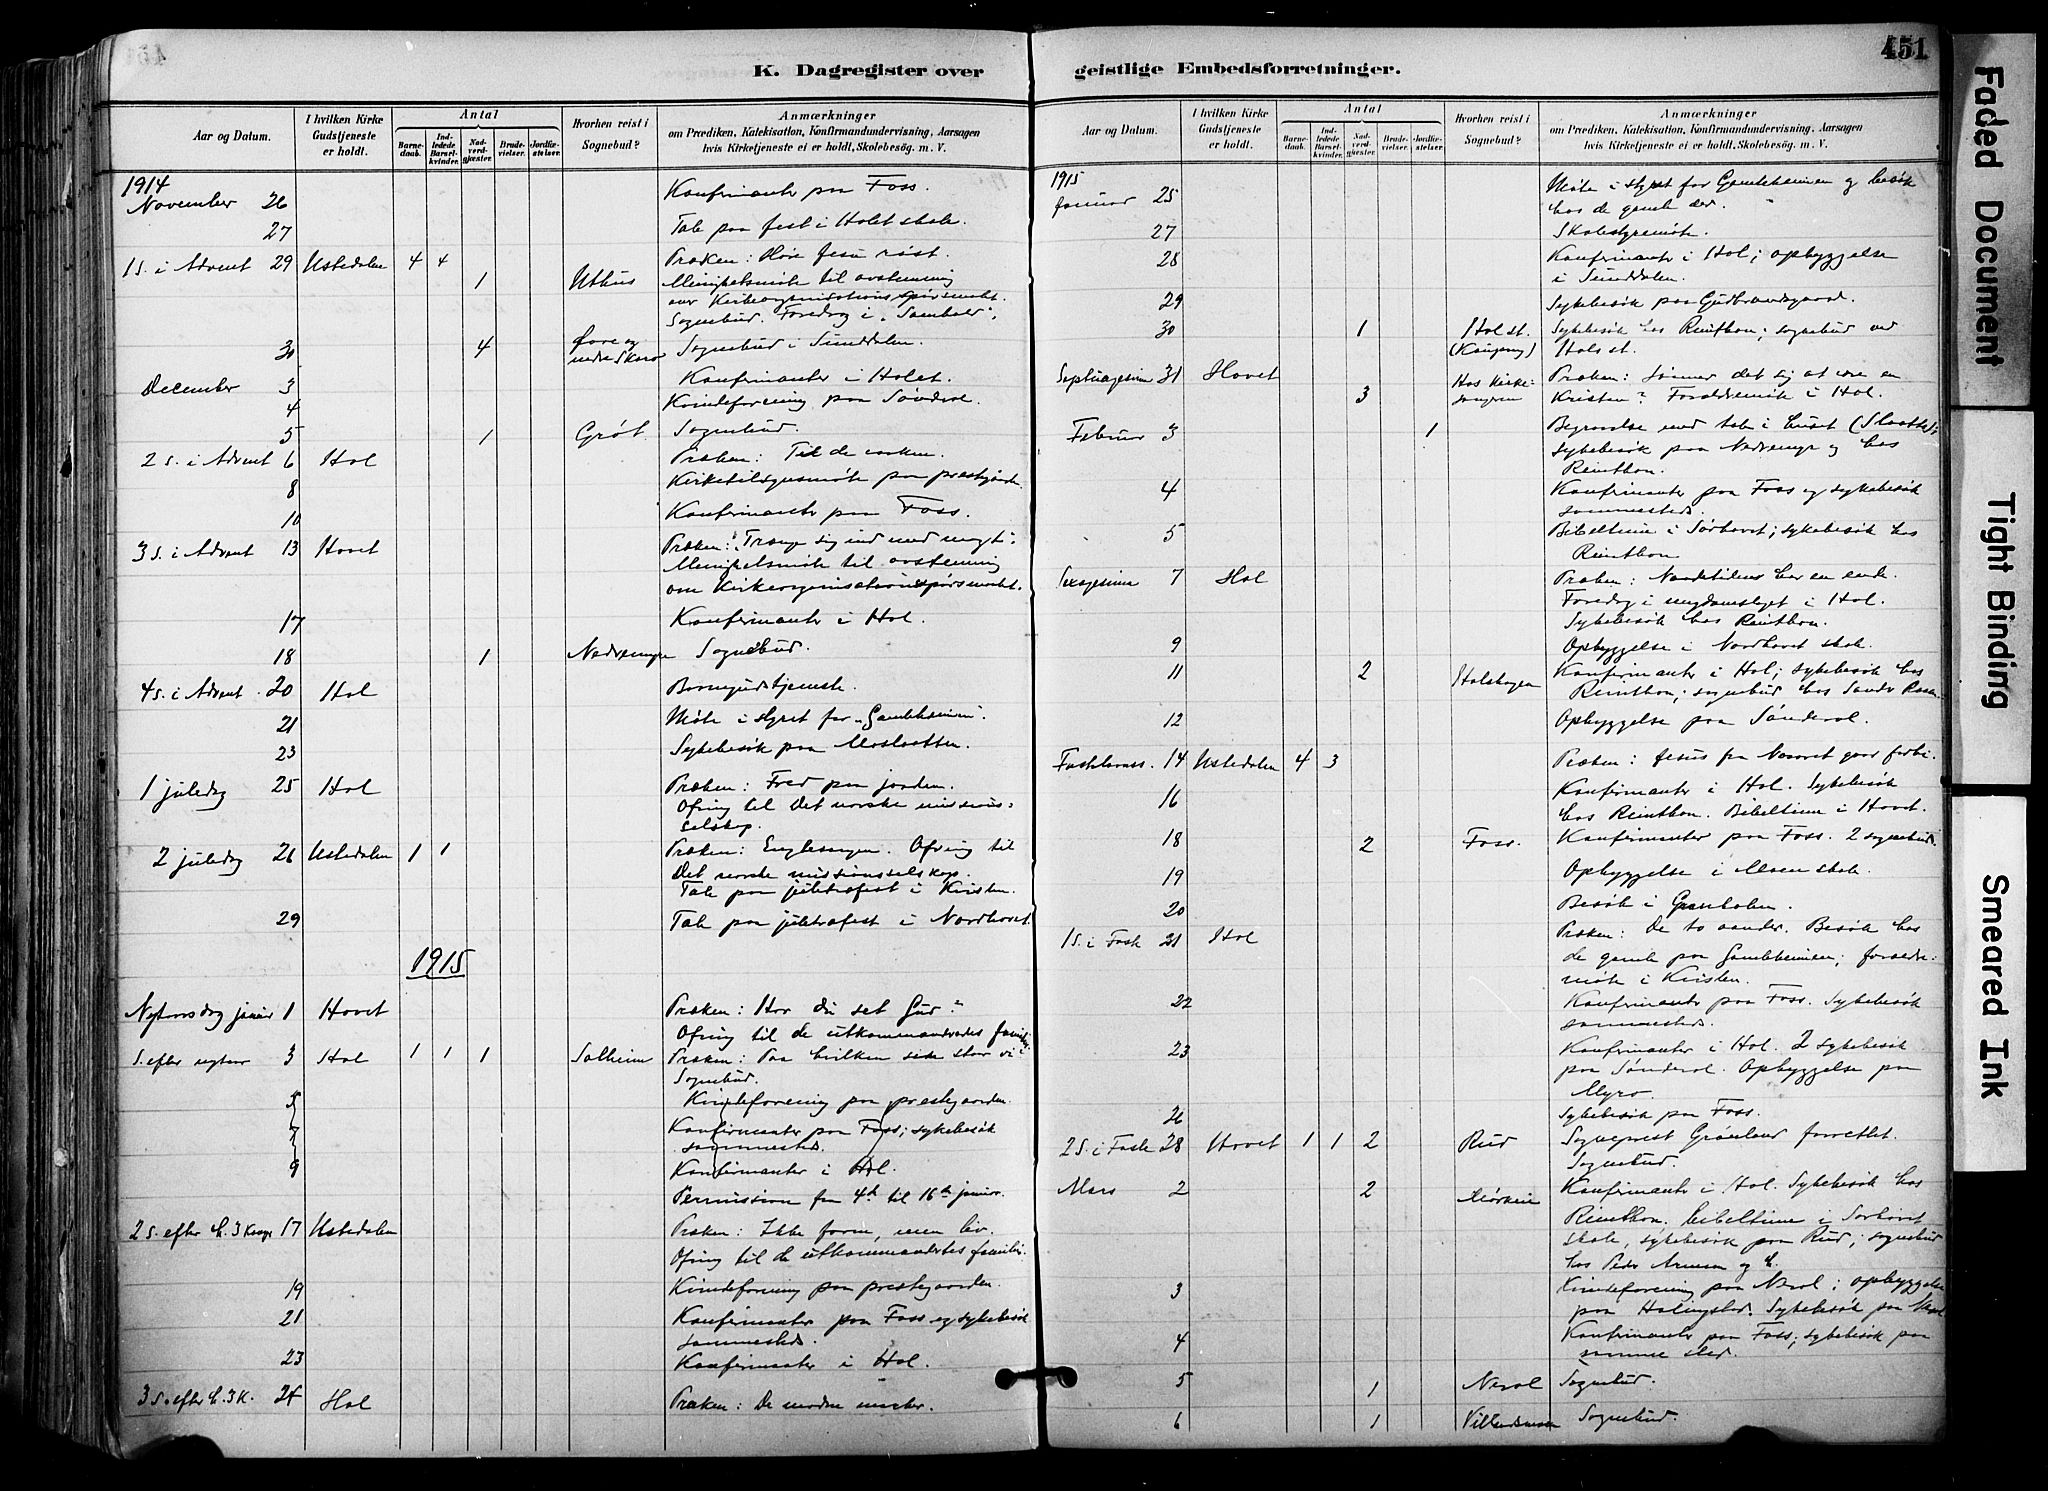 K. Dagregister over
geistlige Embedsforretninger.
451
Aar og Datum.
I hvilken Kirke Gudstjeneste er holdt.
Antal
Barnedaab.
Indledede Barselkvinder.
Nadverdgjester.
Brudevielser.
Jordfæstelser.
Hvorhen reist i Sognebud?
Anmærkninger
om Prædiken, Katekisation, Konfirmandundervisning, Aarsagen
hvis Kirketjeneste ei er holdt, Skolebesøg. m. V.
1914
November 26 Konfirmanter paa Foss.
27 Tale paa fest i Holet skole.
1 S. i Advent 29 Ustedalen 4 4 Præken: Høie Jesu røst.
1 Uthus Menighetsmøte til avstemning
over Kirkeorganisationsspørsmaalet.
Sognebud. Foredrag i
30 4 Sognebud i Sunddalen.
December 3 Konfirmanter i Holet.
4 Kvindeforening paa Sønderol.
5 1 Grøt Sognebud.
2 S. i Advent 6 Hol Præken: Til de
8 Kirketilsynsmøte paa prestegaarden
10 Konfirmanter paa Foss.
3 S. i Advent 13 Hovet Præken: Trænge sig ind med magt.
Menighetsmøte til avstemning
om Kirkeorganisationsspørsmaalet.
17 Konfirmanter i Hol.
18 1 Nedremyr Sognebud.
4 S. i Advent 20 Hol Barnegudstjeneste.
21 Møte i styret for "Gamleheimen".
23 Sykebesøk paa Moslaatten.
1 juledag 25 Hol Præken: Fred paa jorden.
Ofring til Det norske missions-
selskap.
2 juledag 26 Ustedalen 1 1 Præken: Englesangen. Ofring til
Det norske missionsselskap.
Tale paa juletræfest i Kvisten.
29 Tale paa juletræfest i Nordhovet.
1915
Nytaarsdag januar 1 Hovet Præken: Har du set Gud?
Ofring til de utkommanderedes familier
S. efter nytaar 3 Hol 1 1 1 Solheim Præken: Paa hvilken side staar vi?
Sognebud.
5 Kvindeforening paa prestegaarden.
7 Konfirmanter paa Foss; sykebesøk
sammesteds.
9 Konfirmanter i Hol.
Permission fra 4de til 16de januar.
2 S. efter h. 3 Konge 17 Ustedalen Præken: Ikke form, men liv.
Ofring til de utkommandertes familier.
19 Kvindeforening paa prestegaarden.
21 Konfirmanter paa Foss og sykebesøk
sammesteds.
23 Konfirmanter i Hol.
3 S. efter h. 3 K. 24 Hol Præken: De
Aar og Datum.
I hvilken Kirke Gudstjeneste er holdt.
Antal
Barnedaab.
Indledede Barselkvinder.
Nadverdgjester.
Brudevielser.
Jordfæstelser.
Hvorhen reist i Sognebud?
Anmærkninger
om Prædiken, Katekisation, Konfirmandundervisning, Aarsagen
hvis Kirketjeneste ei er holdt, Skolebesøg. m. V.
1915
Januar 25 Møte i styret for Gamleheimen og besøk
hos de gamle der.
27 Skolestyremøte.
28 Konfirmanter i Hol; opbyggelse
i Sunddalen.
29 Sykebesøk paa Gudbrandsgaard.
30 1 Hol st. Sykebesøk hos Reinthon; sognebud ved
Hol st.
Septuagesima 31 Hovet Præken: Sømmer det sig at være en
3 Hos kirkesangeren Kristen? Forældremøte i Hol.
Februar 3 1 Begravelse med tale i huset
sykebesøk paa Nedremyr og hos
Reinthon.
4 Konfirmanter paa Foss og sykebesøk
sammesteds.
5 Bibeltime i Sørhovet; sykebesøk hos
Reinthon
Sexagesima 7 Hol Præken: Naadetiden har en ende.
Foredrag i ungdomslaget i Hol.
Sykebesøk hos Reinthon.
9 Opbyggelse i Nordhovet skole.
11 2 Holshagen Konfirmanter i Hol; sykebesøk hos
Reinthon; sognebud hos
12 Opbyggelse paa Sønderol.
Fastelavns. 14 Ustedalen 4 3 Præken: Jesus fra Nasaret gaar forbi.
16 Konfirmanter i Hol. Sykebesøk
hos Reinthon. Bibeltime i Hovet.
18 2 Foss. Konfirmanter paa Foss. 2 sognebud.
19 Opbyggelse i Moen skole.
20 Besøk i
1 S. i Faste 21 Hol Præken: De to aander. Besøk hos
de gamle paa Gamleheimen; forældre-
møte i Kvisten.
22 Konfirmanter paa Foss. Sykebesøk
sammesteds.
23 Konfirmanter i Hol. 2 sykebesøk
paa Sønderol. Opbyggelse paa
Myro.
26 Sykebesøk paa Foss.
2 S. i Faste 28 Hovet 1 1 2 Rud Sogneprest Grønlund forrettet.
Sognebud.
Mars 2 2 Konfirmanter i Hol. Sykebesøk hos
Reinthon. Bibeltime i Sørhovet
skole, sykebesøk paa Rud; sognebud
hos Peder
3 Kvindeforening paa Nerol; opbyggelse
paa Holingstad. Sykebesøk paa
4 Konfirmanter paa Foss; sykebesøk paa
samme sted.
5 1 Nerol Sognebud.
6 1 Sognebud.
Faded Document
Tight Binding
Smeared Ink